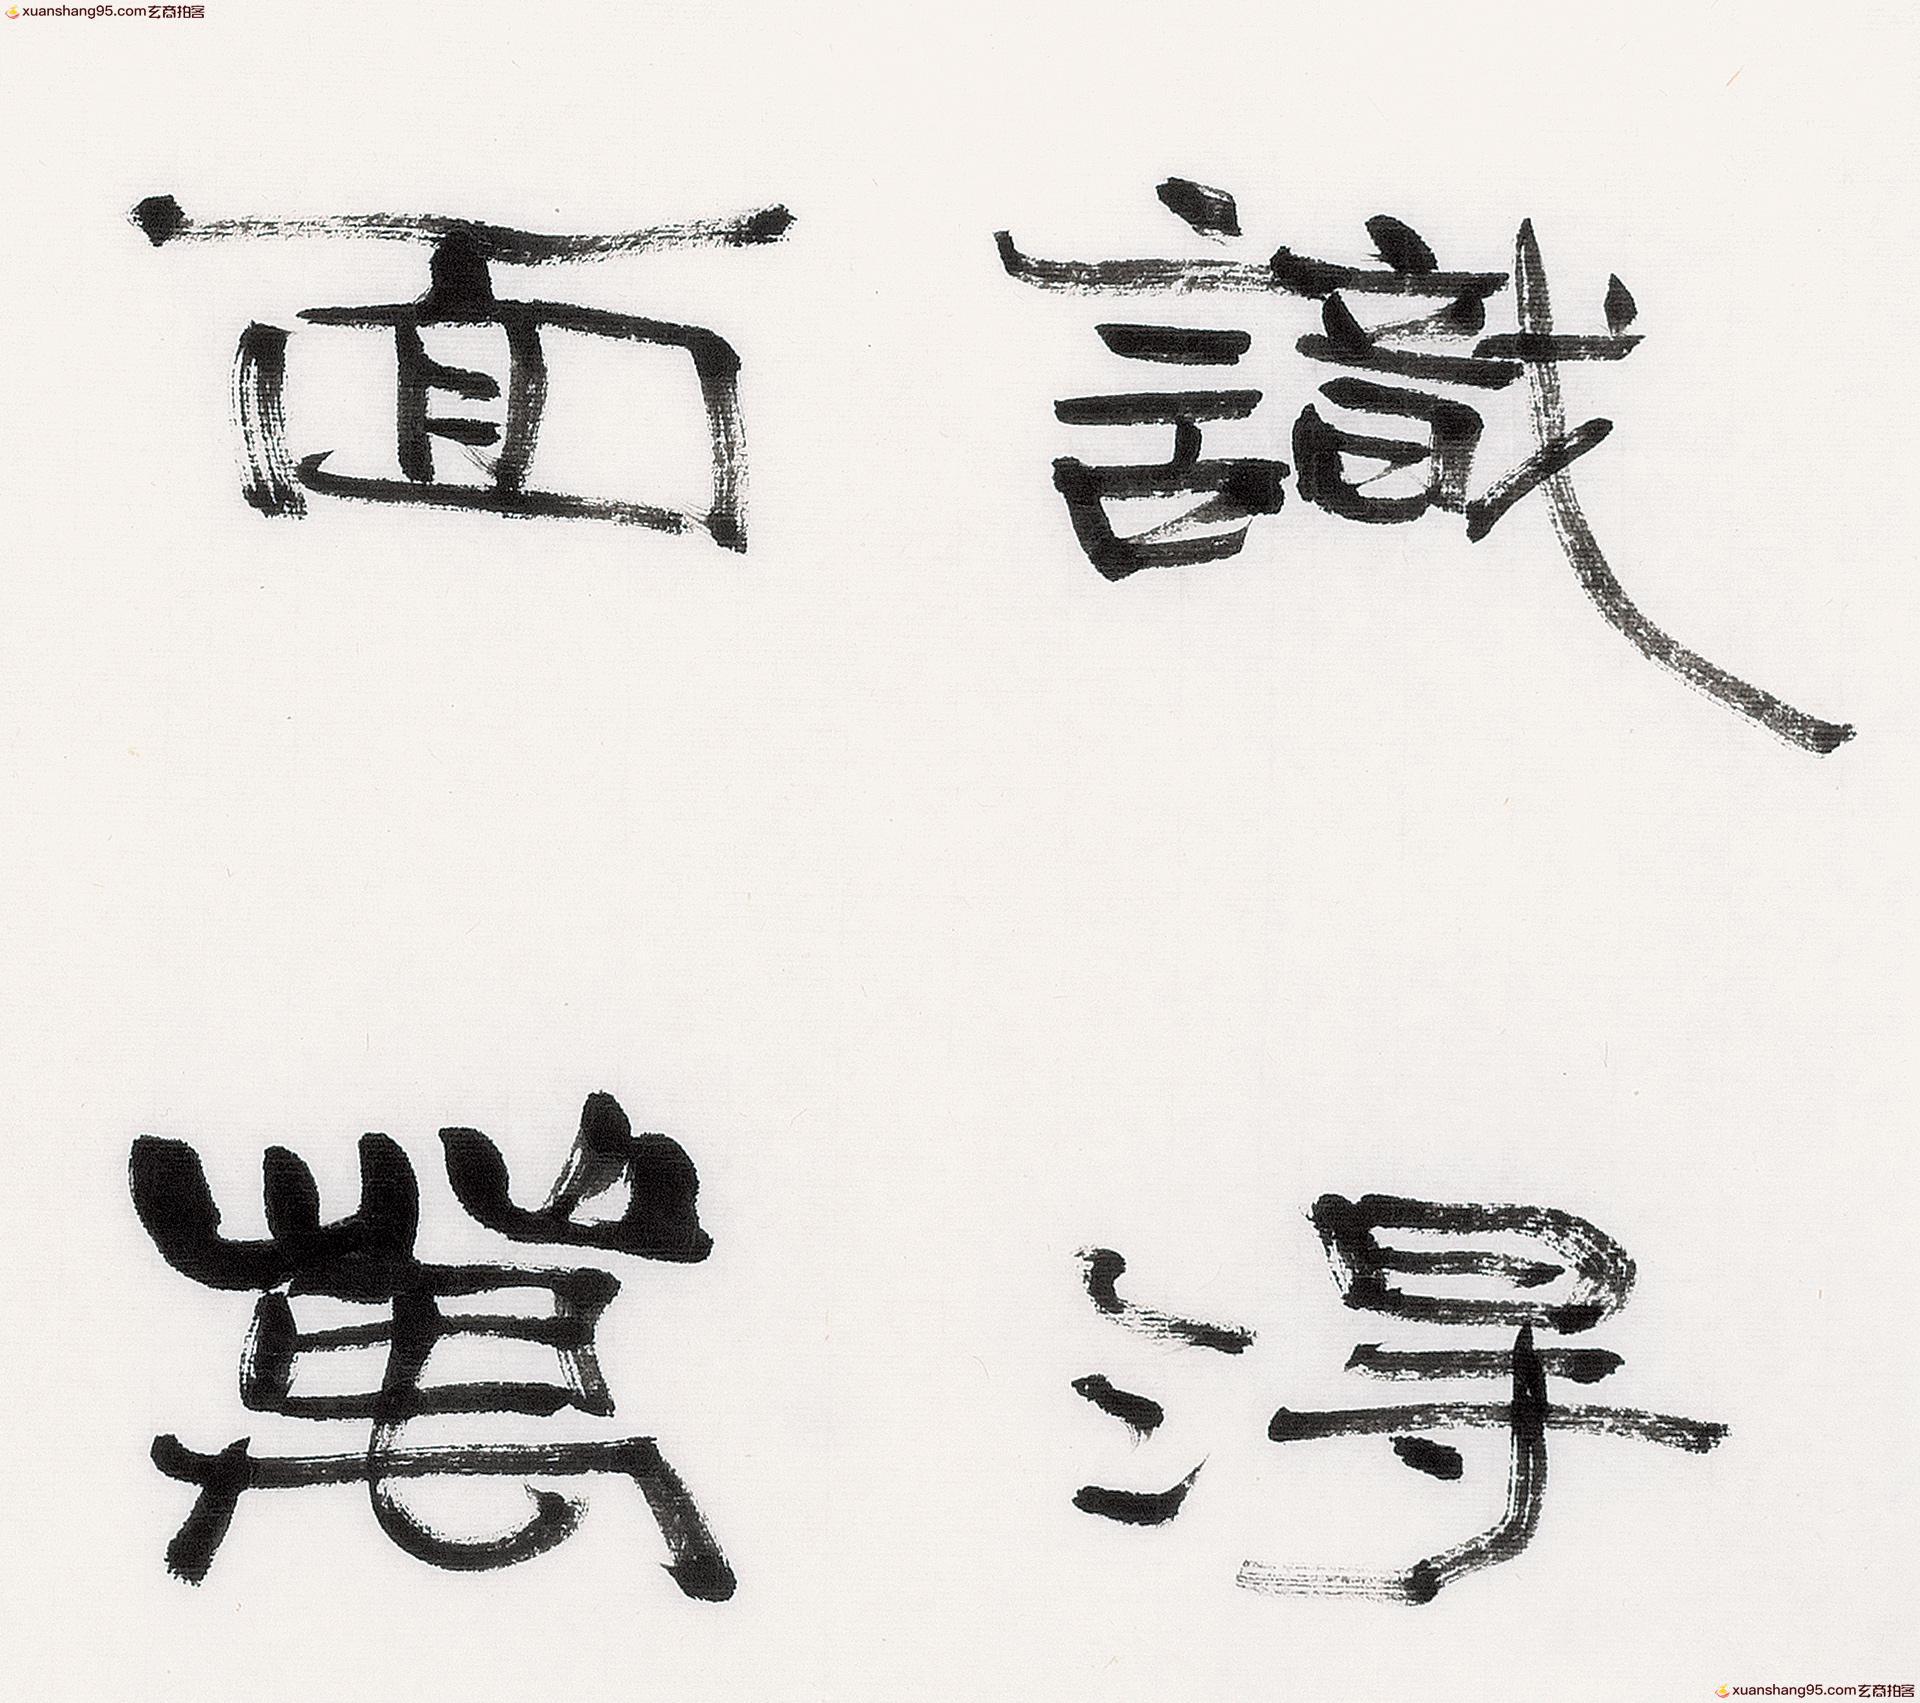 xuanshang95.com玄商拍客
識得
面萬
xuanshang95.com玄商拍客